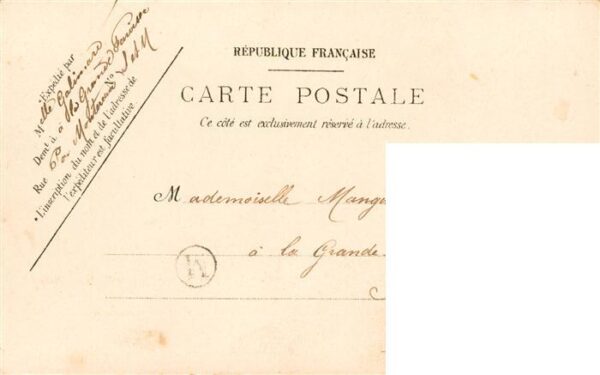 Expédié par
Melle Galimard
Demt à la Grande Paroisse
Rue Par Montereau No S et M
L'inscription du nom et de l'adresse de
l'expéditeur est facultative.
RÉPUBLIQUE FRANÇAISE
CARTE POSTALE
Ce côté est exclusivement réservé à l'adresse.
Mademoiselle Mang
à la Grande